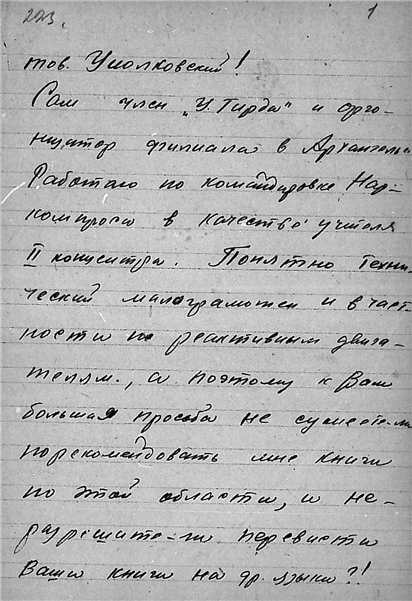 223. 1
тов. Циолковский!
Сам член "Ц. Гирда" и орга-
низатор филиала в Архангельск
Работаю по командировке Нар-
компроса в качестве учителя
II концентра. Понятно техни-
ческий малограмотен и в част-
ности по реактивным двига-
телям., а поэтому к Вам
большая просьба не сумеете-ли
порекомендовать мне книги
по этой области, и не-
разрешите-ли перевести
Ваши книги на др. языки?!